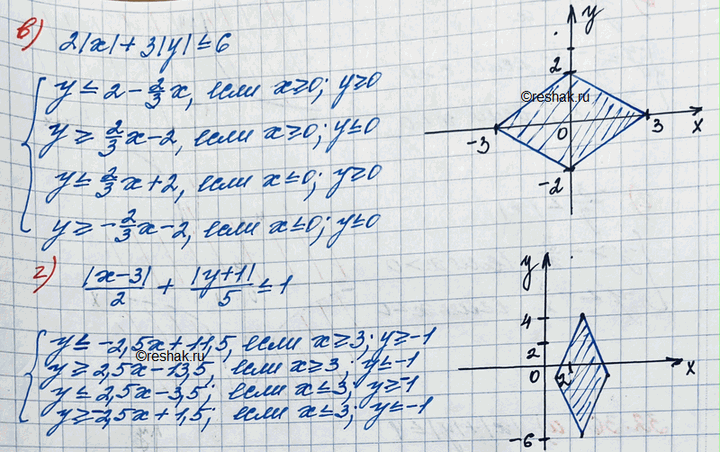 в) 2|x| + 3|y| ≤ 6
y ≤ 2 - 2/3 x, если x ≥ 0; y ≥ 0
y ≥ 2/3 x - 2, если x ≥ 0; y ≤ 0
y ≤ 2/3 x + 2, если x ≤ 0; y ≥ 0
y ≥ -2/3 x - 2, если x ≤ 0; y ≤ 0
y
2
©reshak.ru
-3
0
3
x
-2
г) |x-3|/2 + |y+1|/5 ≤ 1
y ≤ -2,5x + 11,5, если x ≥ 3; y ≥ -1
©reshak.ru
y ≥ 2,5x - 13,5; если x ≥ 3; y ≤ -1
y ≤ 2,5x - 3,5; если x ≤ 3; y ≥ -1
y ≥ -2,5x + 1,5; если x ≤ 3; y ≤ -1
y
4
2
0
2
x
-6